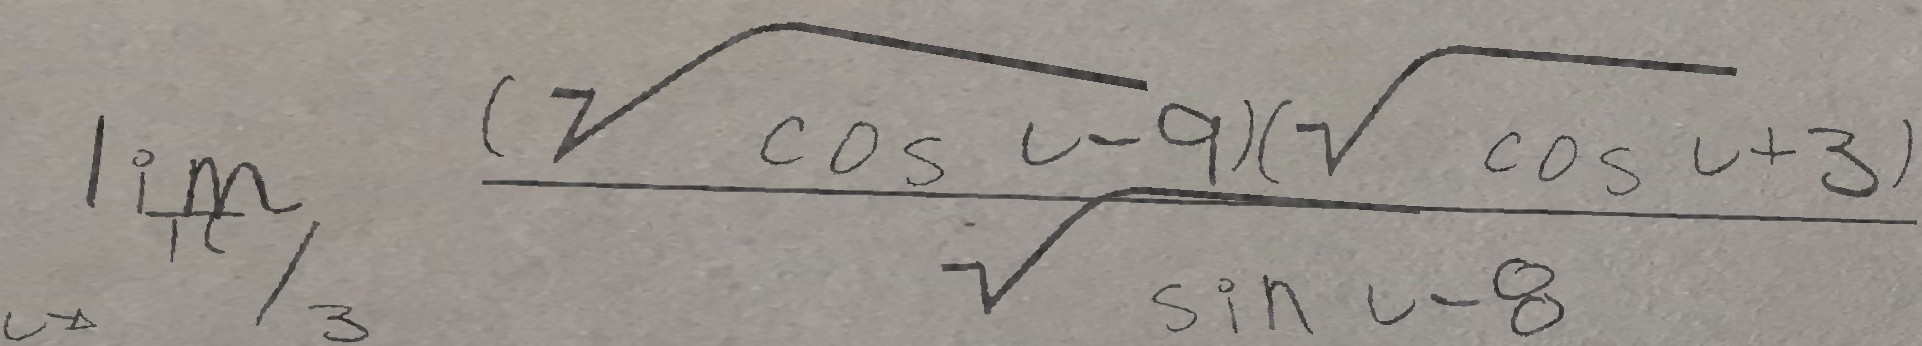 lim u→π/3 (√cos u − 9)(√cos u + 3) / (√sin u − 8)